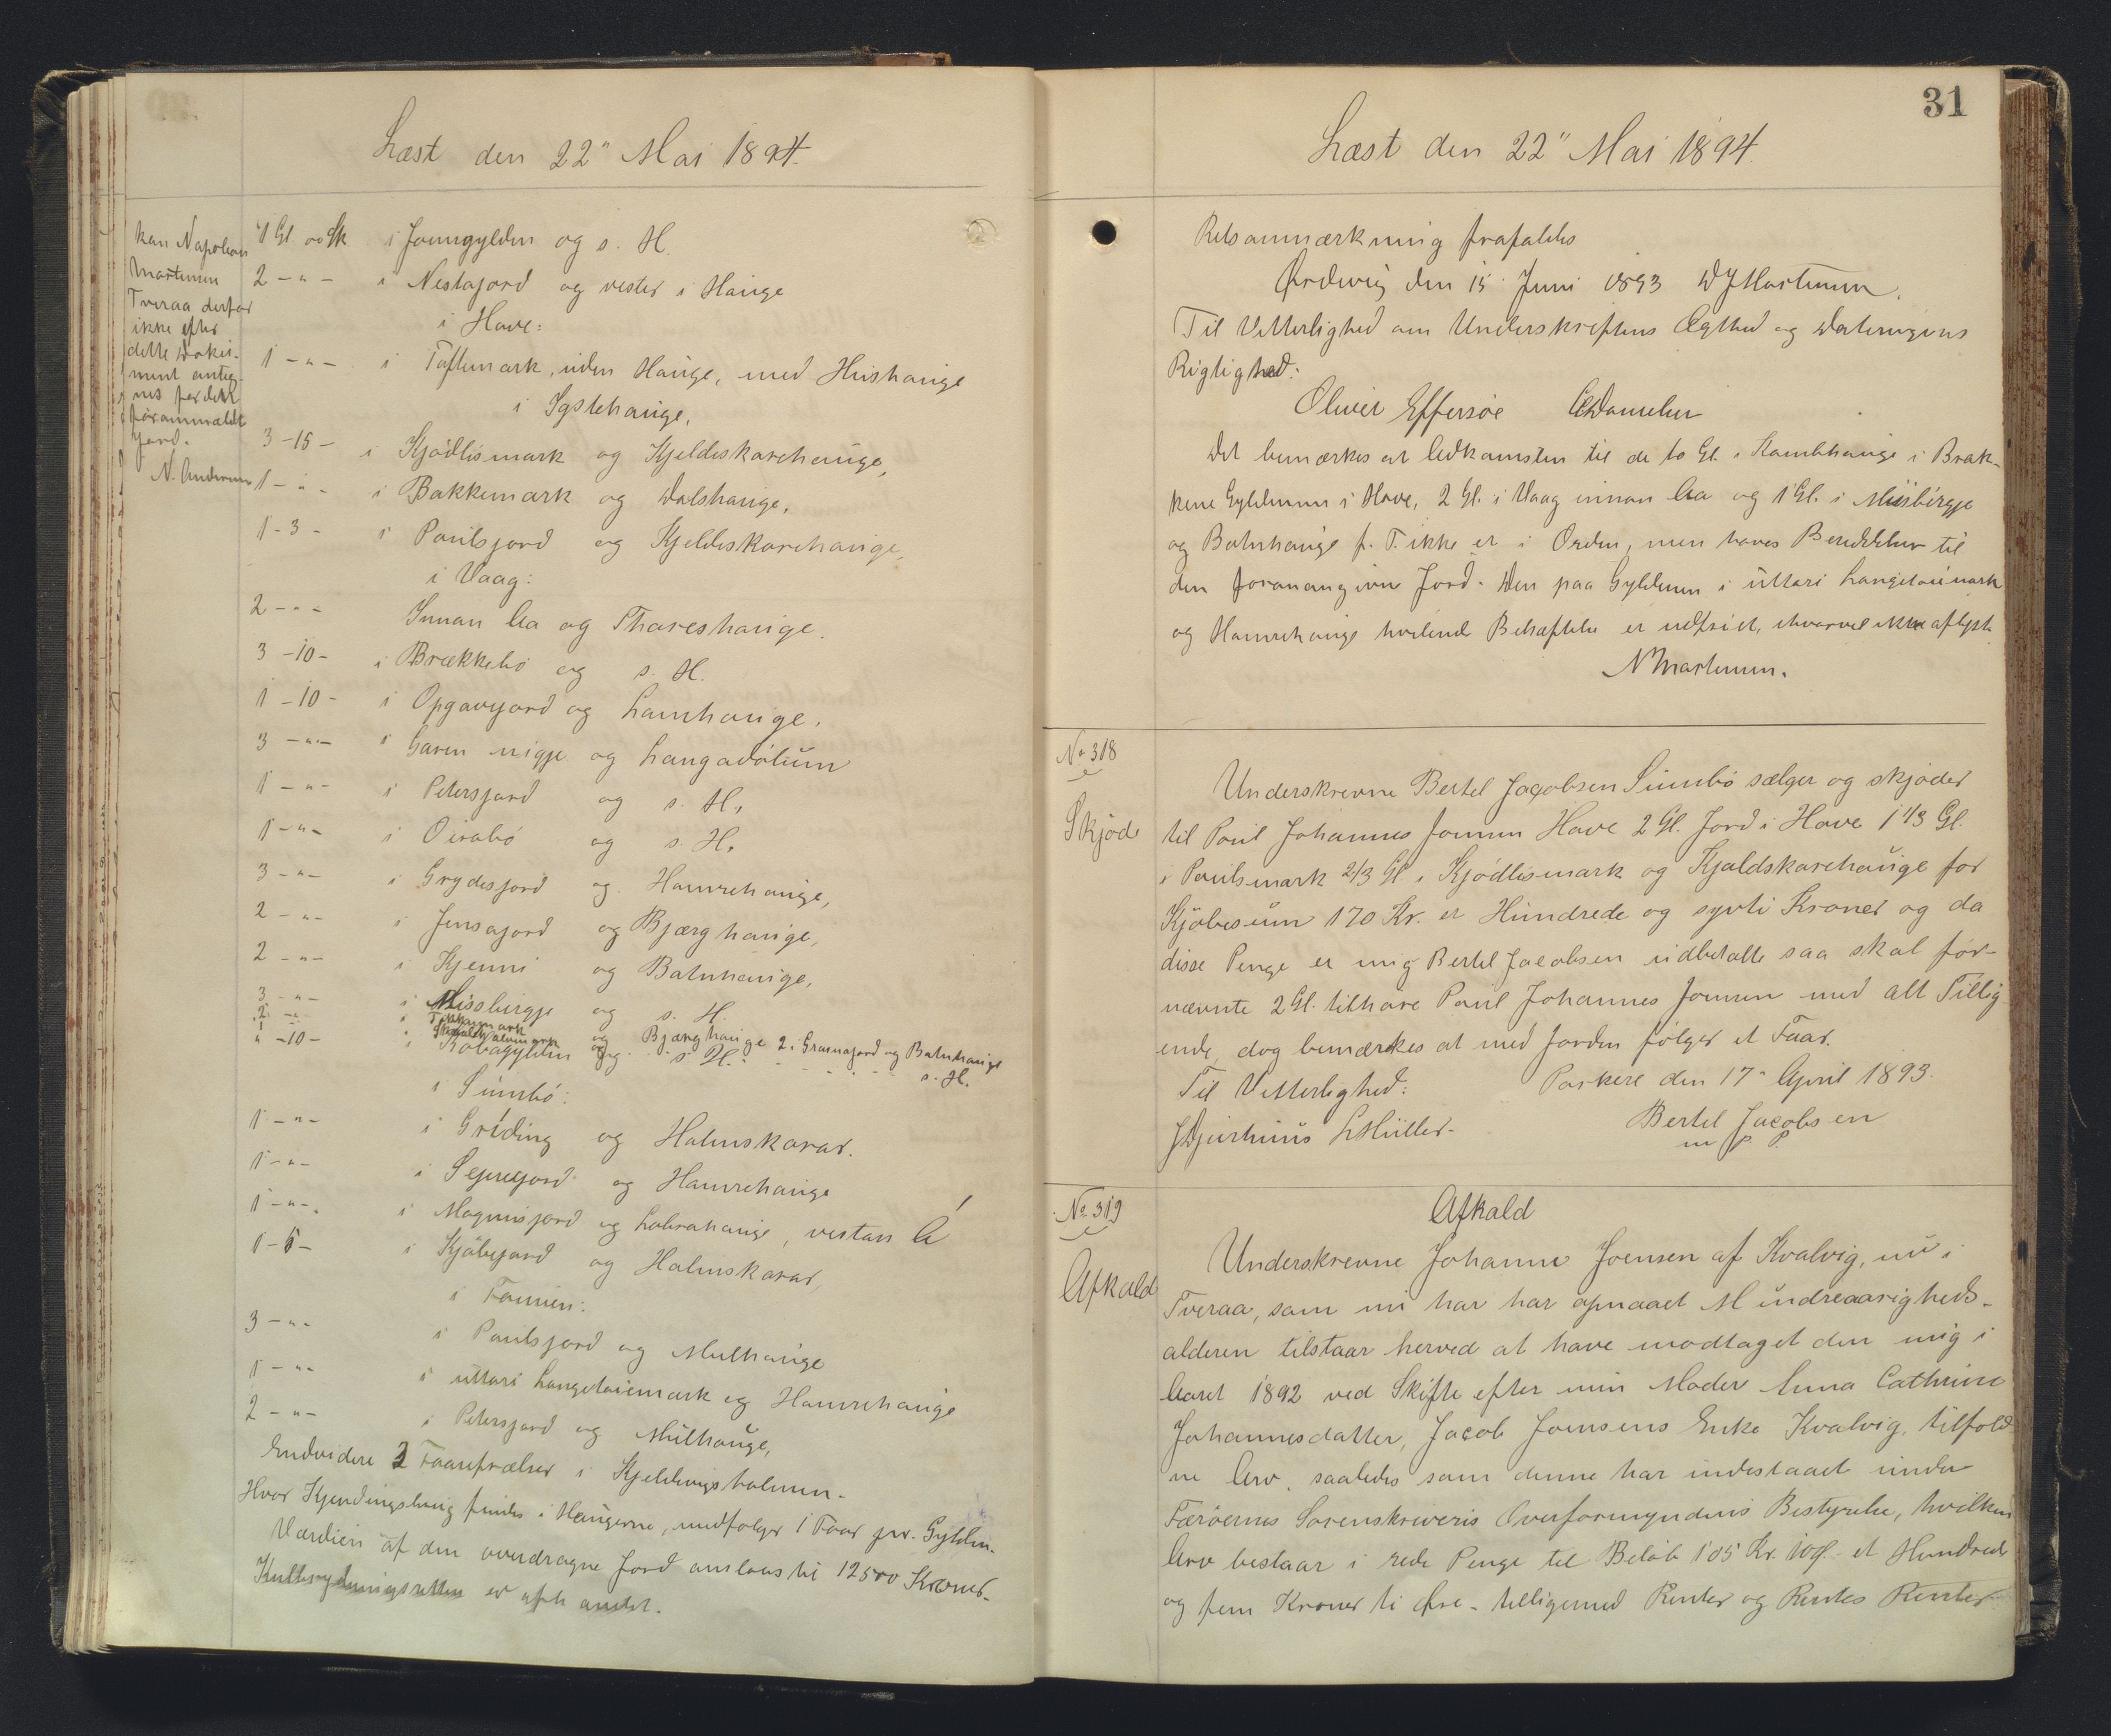 Læst den 22" Mai 1894.
kan Napoleon
Mortensen
Tveraa derfor
ikke efter
dette Doku-
ment anteg-
nes for den
foranmeldt
Jord.
N. Andersen
1 Gl oo Sk i Joensgylden og s. H.
2 - " - i Nestajord og vester i Hauge
i Hove:
1 - " - i Toftemark, uden Hauge, med Hushauge
i Systehauge,
3 - 15 - i Kjødlismark og Kjeldeskarehauge,
1 - " - i Bakkemark og Dalshauge,
1 - 3 - i Poulsjord og Kjeldeskarehauge,
i Vaag:
2 - " - Innan Aa og Thoreshauge.
3 - 10 - i Brækkebø og s. H.
1 - 10 - i Opgavejord og Lamhauge.
3 - " - i Garen niggje og Langadølum
1 - " - i Petersjord og s. H.
1 - " - i Oirabø og s. H.
3 - " - i Grydesjord og Hamrehauge,
2 - " - i Jensajord og Bjærghauge,
2 - " - i Kjenni og Botnhauge,
3 - " - i Missbirgje og s. H.
og Bjærghauge 2 i Græsnajord og Botnhauge
" - 10 - i Robagylden og s. H. s. H.
i Sumbø:
1 - " - i Gríding og Holmskorar.
1 - " - i Sejrejord og Hamrehauge
1 - " - i Magnusjord og Lobrahauge, vestan Á
1 - 5 - i Kjøbejord og Holmskorar,
i Famien:
3 - " - i Poulsjord og Mulhauge
1 - " - i uttari Langetoiemark og Hamrehauge
2 - " - i Petersjord og Mulhauge,
Endvidere 2 Faarefrælser i Kjeldvigsholmen.
Hvor Kjendingshvig findes i Haugerne, medfølger 1 Faar pr. Gylden.
Værdien af den overdragne Jord anslaas til 12500 Kroner.
er afh andet.
31
Læst den 22" Mai 1894.
Retsanmærkning frafaldes
Ørdevig den 15 Juni 1893 D J Mortensen.
Til Vitterlighed om Underskriftens Ægthed og Dateringens
Rigtighed:
Oliver Effersøe C Danielsen
Det bemærkes at Adkomsten til de to Gl. i Kambhauge i Brek-
kene Gyldenen i Hove, 2 Gl. i Vaag innan Aa og 1 Gl. i Missbirgje
og Botnhauge p. T. ikke er i Orden, men haves Berettelser til
den foranangivne Jord. Den paa Gyldenen i uttari Langetoiemark
og Hamrehauge hvilende Behæftelse er udfriet, ehvorvel ikke aflyst.
N Mortensen.
No 318
Skjøde
Underskrevne Bertel Jacobsen Sumbø sælger og skjøder
til Poul Johannes Joensen Hove 2 Gl. Jord i Hove 1 1/3 Gl.
i Poulsmark 2/3 Gl i Kjødlismark og Kjeldskarehauge for
Kjøbesum 170 Kr. et Hundrede og syvti Kroner og da
disse Penge er mig Bertel Jacobsen udbetalte saa skal før-
nævnte 2 Gl. tilhøre Poul Johannes Joensen med alt Tillig-
ende, dog bemærkes at med Jorden følger et Faar.
Porkere den 17" April 1893.
Til Vitterlighed:
Bertel Jacobsen
m P. P.
J Djurhuus L Müller.
No 319
Afkald
Afkald
Underskrevne Johanne Joensen af Kvalvig, nu i
Tveraa, som nu har har opnaaet Mindreaarigheds-
alderen tilstaar herved at have modtaget den mig i
Aaret 1892 ved Skifte efter min Moder Anna Cathrine
Johannesdatter, Jacob Joensens Enke Kvalvig, tilfald-
ne Arv, saaledes som denne har indestaaet under
Færøernes Sorenskriveris Overformynderis Bestyrelse, hvilken
Arv bestaar i rede Penge til Beløb 105 Kr. 10 Ø. et Hundrede
og fem Kroner ti Øre - tilligemed Renter og Rentes Renter